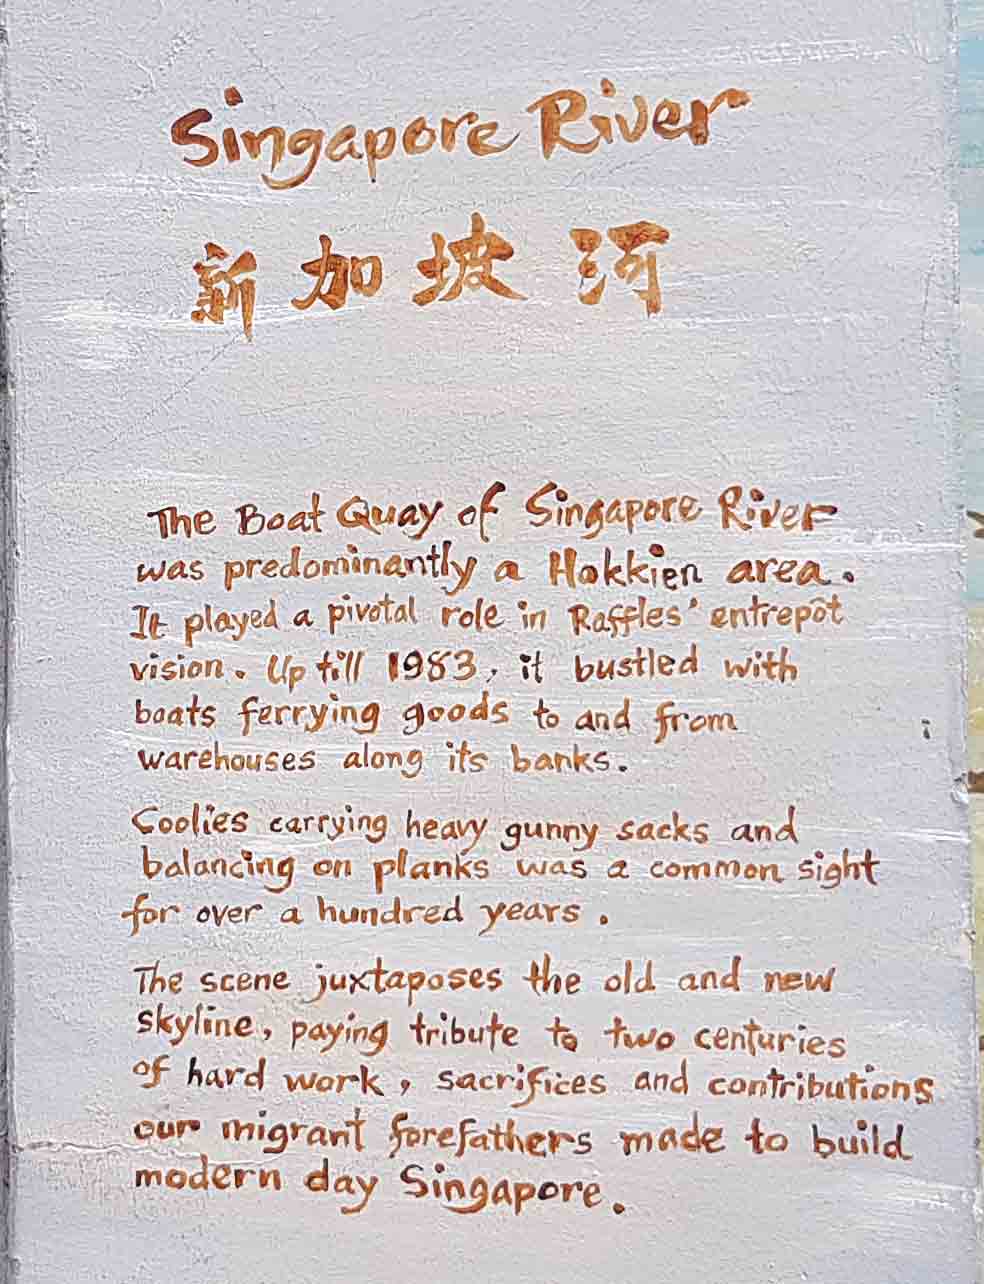 Singapore River
新加坡河
The Boat Quay of Singapore River
was predominantly a Hokkien area.
It played a pivotal role in Raffles' entrepôt
vision. Up till 1983, it bustled with
boats ferrying goods to and from
warehouses along its banks.
Coolies carrying heavy gunny sacks and
balancing on planks was a common sight
for over a hundred years.
The scene juxtaposes the old and new
skyline, paying tribute to two centuries
of hard work, sacrifices and contributions
our migrant forefathers made to build
modern day Singapore.